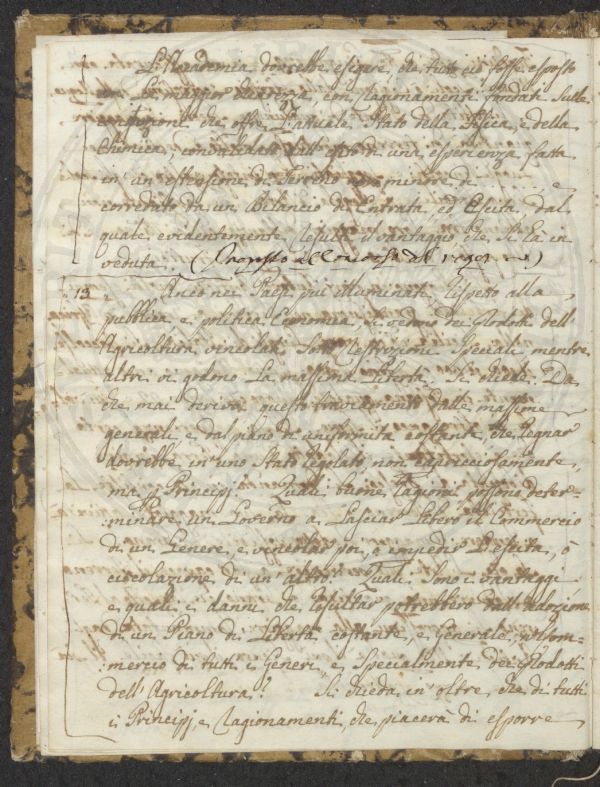 L'Accademia dovrebbe esigere, che tutto ciò fosse esposto
con la maggior chiarezza, con ragionamenti fondati sulle
che offre l'attuale Stato della Fisica, e della
Chimica, convalidato dall'esito di una esperienza fatta
in un'estensione di Terreno non minore di ........ e
corredato da un Bilancio di Entrata, ed Escita, dal
quale evidentemente resulti il vantaggio, che si ha in
veduta. (
13 Anco nei Paesi più illuminati, rispetto alla
pubblica, e politica Economia, si vedono dei Prodotti dell'
Agricoltura vincolati sotto restrizioni speciali, mentre
altri vi godono la massima Libertà. Si chiede: Da
che mai derivi questo traviamento dalle massime
generali, e dal piano di uniformità costante, che regnar
dovrebbe in uno Stato regolato, non capricciosamente,
ma p Principj. Quali buone ragioni possono deter-
:minare un Governo a lasciar libero il Commercio
di un Genere, e vincolar poi, o impedir l'escita, o
circolazione di un'altro? Quali sono i vantaggi
e quali i danni che resultar potrebbero dall'adozione
di un Piano di Libertà costante, e generale, nel Com-
:mercio di tutti i Generi, e specialmente dei Prodotti
dell'Agricoltura? Si chieda in oltre, che di tutti
i Principj, e ragionamenti, che piacerà di esporre